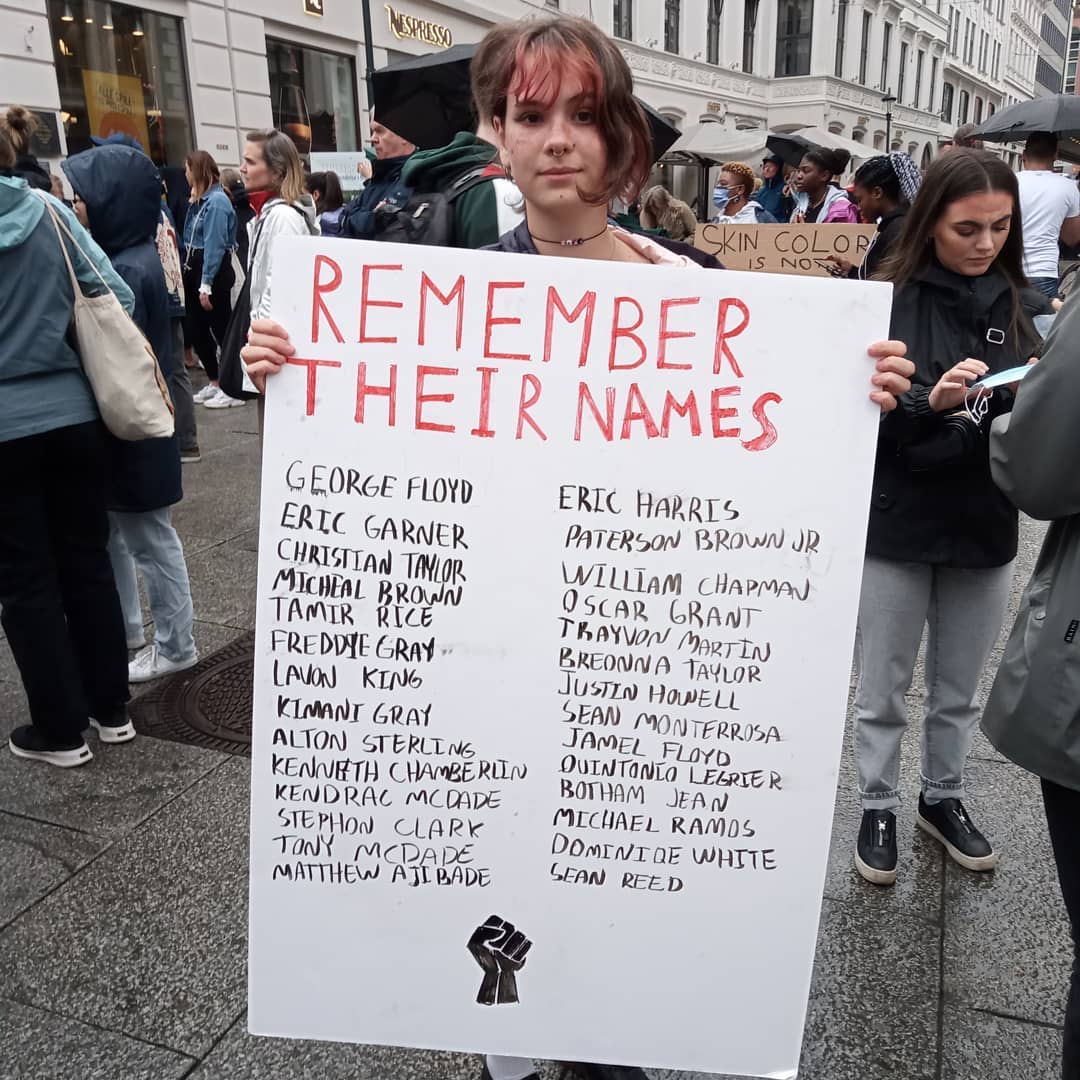 NESPRESSO
SKIN COLOR
IS NOT
REMEMBER
THEIR NAMES
GEORGE FLOYD
ERIC GARNER
CHRISTIAN TAYLOR
MICHEAL BROWN
TAMIR RICE
FREDDIE GRAY
LAVON KING
KIMANI GRAY
ALTON STERLING
KENNETH CHAMBERLIN
KENDRAC MCDADE
STEPHON CLARK
TONY MCDADE
MATTHEW AJIBADE
ERIC HARRIS
PATERSON BROWN JR
WILLIAM CHAPMAN
OSCAR GRANT
TRAYVON MARTIN
BREONNA TAYLOR
JUSTIN HOWELL
SEAN MONTERROSA
JAMEL FLOYD
QUINTONIO LEGRIER
BOTHAM JEAN
MICHAEL RAMOS
DOMINIQE WHITE
SEAN REED